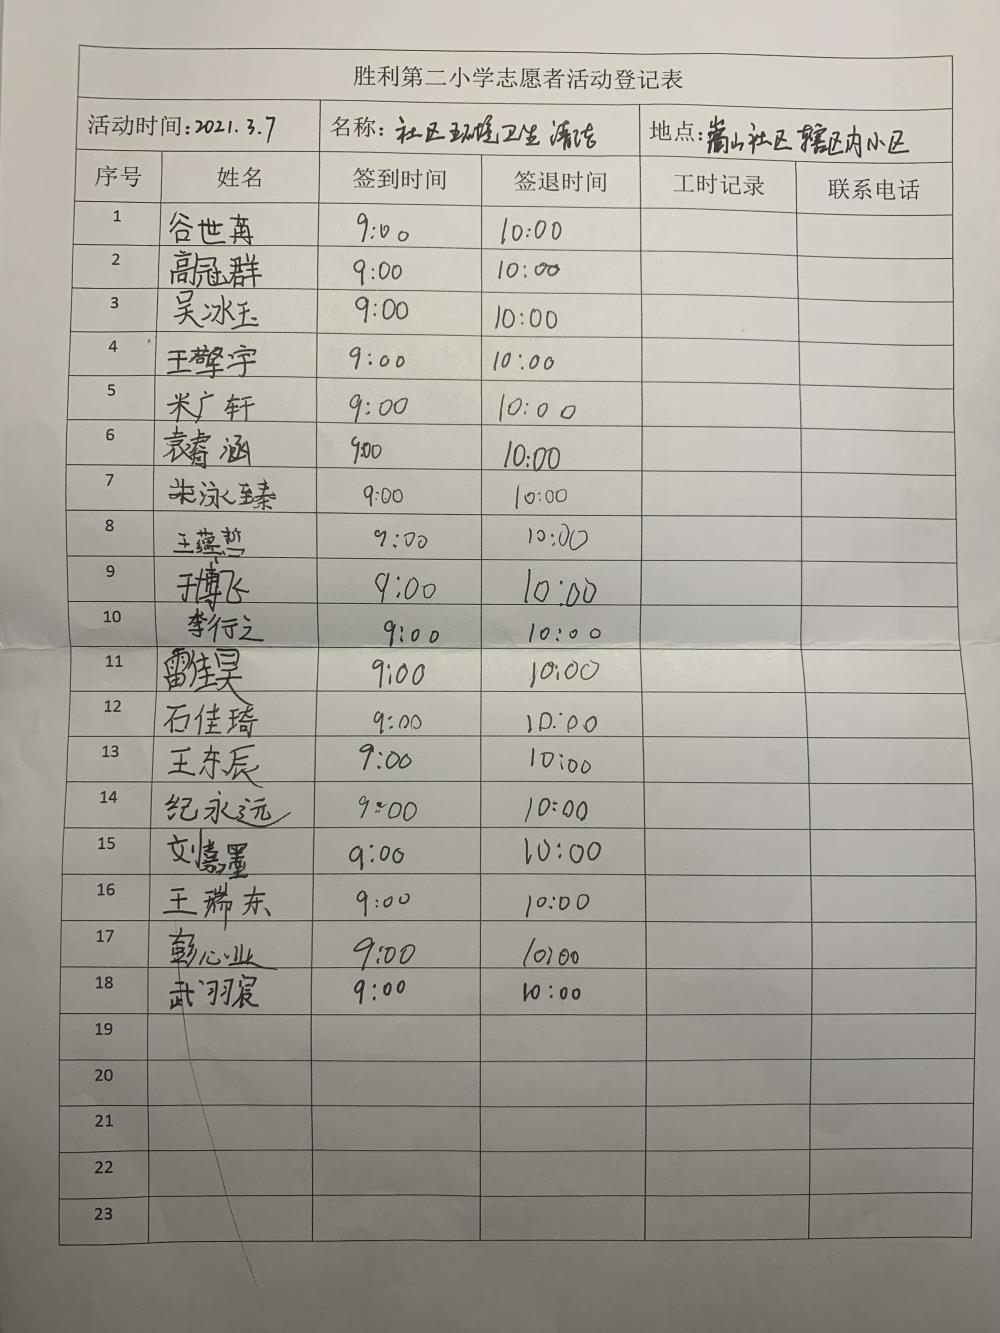 胜利第二小学志愿者活动登记表
活动时间:2021.3.7 名称: 社区环境卫生清洁 地点:嵩山社区辖区内小区
序号 姓名 签到时间 签退时间 工时记录 联系电话
1 谷世 9:00 10:00
2 高冠群 9:00 10:00
3 吴冰玉 9:00 10:00
4 王擎宇 9:00 10:00
5 米广轩 9:00 10:00
6 袁睿涵 9:00 10:00
7 朱泳臻 9:00 10:00
8 王蕴哲 9:00 10:00
9 于博飞 9:00 10:00
10 李行之 9:00 10:00
11 雷佳昊 9:00 10:00
12 石佳琦 9:00 10:00
13 王东辰 9:00 10:00
14 纪永远 9:00 10:00
15 刘嘉墨 9:00 10:00
16 王瑞东 9:00 10:00
17 彭心业 9:00 10:00
18 武羽宸 9:00 10:00
19
20
21
22
23